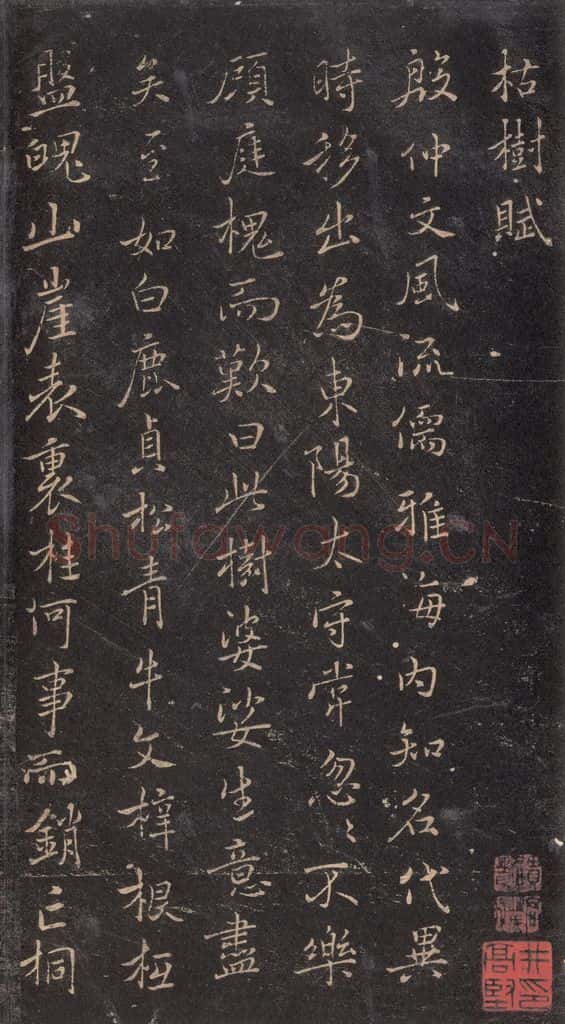 枯樹賦
殷仲文風流儒雅海内知名代異
時移出為東陽太守常忽〻不樂
顧庭槐而歎曰此樹婆娑生意盡
矣至如白鹿貞松青牛文梓根柢
盤魄山崖表裏桂何事而銷亡桐
Shufawang.CN